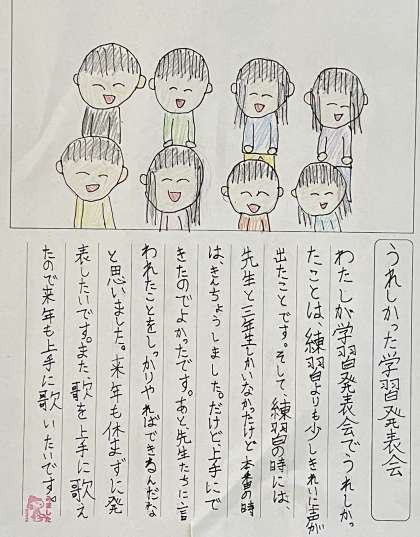 うれしかった学習発表会
わたしが学習発表会でうれしか。
たことは、練習よりも少しきれいに声が
出たことです。そして、練習の時には、
先生と三年生しかいなかったけど本番の時
は、きんちょうしました。だけど、上手にで
きたのでよかったです。あと先生たちに言
われたことをしっかりやればできるんだな
と思いました。来年も休まずに発
表したいです。また歌を上手に歌え
たので来年も上手に歌いたいです。